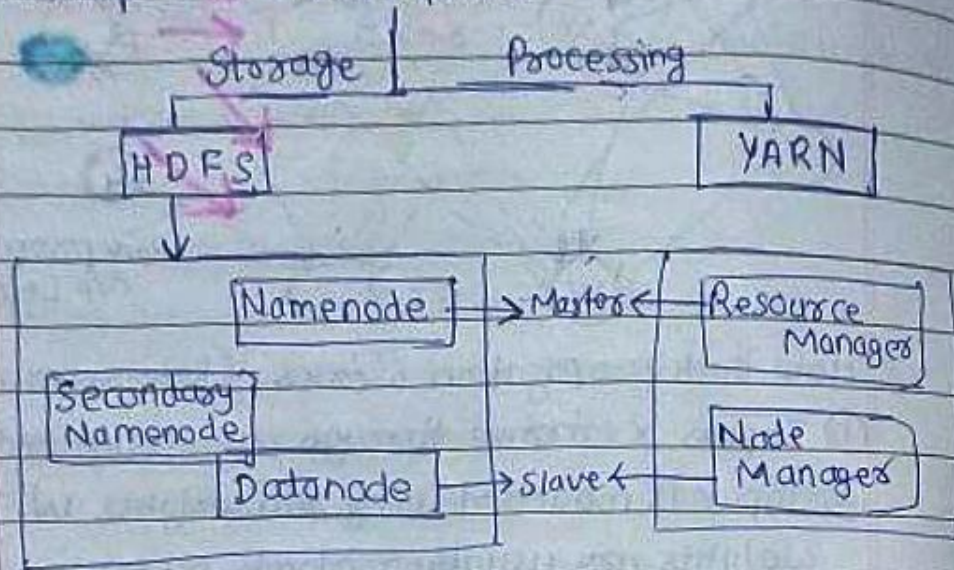 Storage Processing
HDFS YARN
Namenode Master Resource
Manager
Secondary
Namenode Node
Manager
Datanode slave